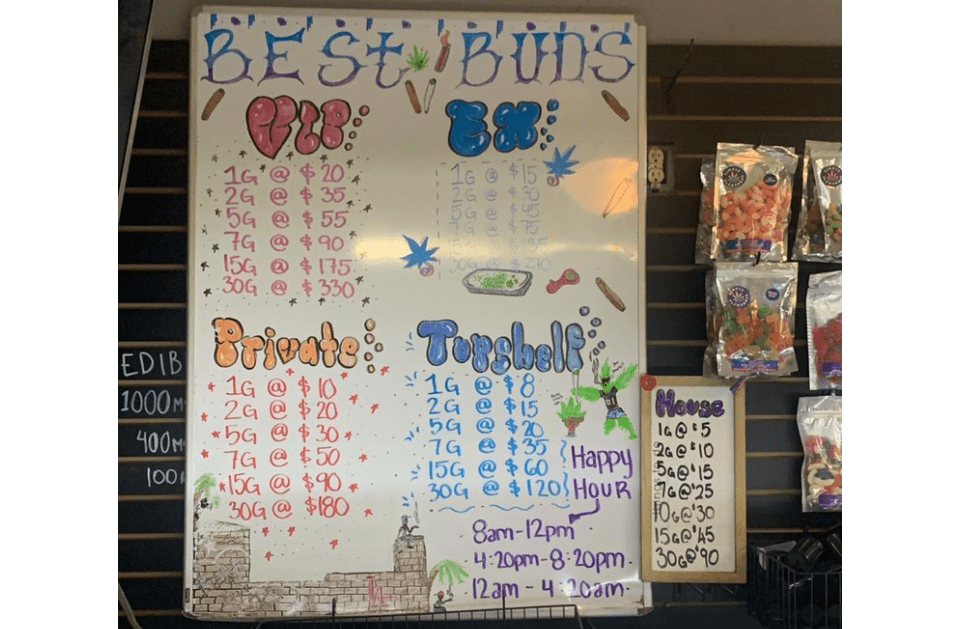 BEST BUDS
VIP:
1G @ $20
2G @ $35
5G @ $55
7G @ $90
15G @ $175
30G @ $330
EX:
1G @ $15
2G @
5G @
7G @
30G @ $270
Private:
1G @ $10
2G @ $20
5G @ $30
7G @ $50
15G @ $90
30G @ $180
Topshelf
1G @ $8
2G @ $15
5G @ $20
7G @ $35
15G @ $60
30G @ $120
Happy
Hour
8am-12pm
4:20pm-8:20pm.
12am - 4:20am.
House
1G@$5
2G@$10
5G@$15
7G@$25
10G@$30
15G@$45
30G@$90
EDIB
1000M
400M
100